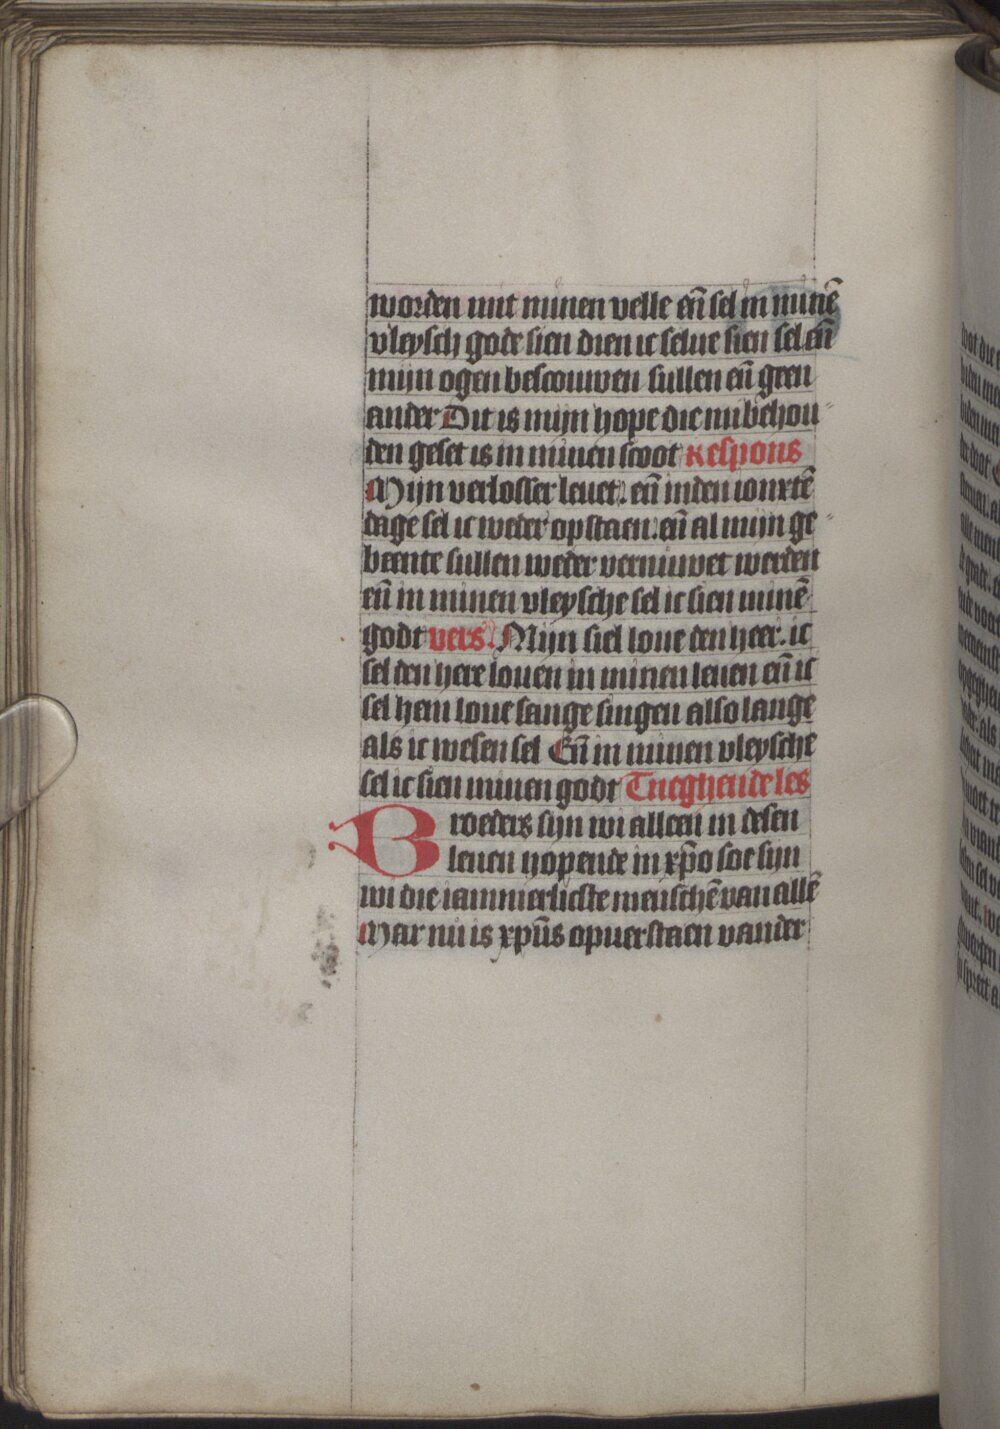 worden mit minen velle en̄ sel in minē
vleysch gode sien dien ic selue sien sel en̄
mijn ogen bescouwen sullen en̄ geen
ander Dit is mijn hope die mi behou
den geset is in minen scoot Respons
Mijn verlosser leuet. en̄ inden ionxtē
dage sel ic weder opstaen. en̄ al mijn ge
beente sullen weder vernuwet werden
en̄ in minen vleysche sel ic sien minē
godt vers. Mijn siel loue den heer. ic
sel den here louen in minen leuen en̄ ic
sel hem loue sange singen also lange
als ic wesen sel En̄ in minen vleysche
sel ic sien minen godt Tneghende les
Broeders sijn wi alleen in desen
leuen hopende in xp̄o soe sijn
wi die iammerlicste menschē van allē
Mar nu is xp̄us opuerstaen vander